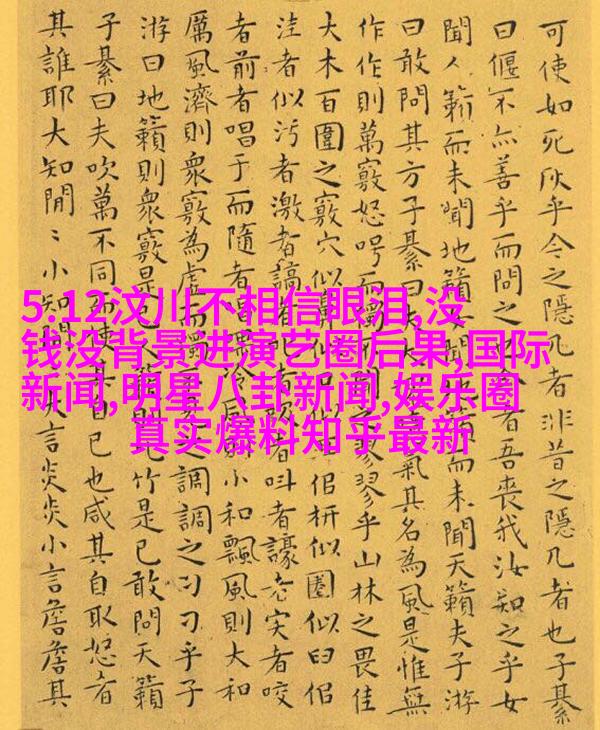 5.12汶川不相信眼泪,没
钱没背景进演艺圈后果,国际
新闻,明星八卦新闻,娱乐圈
真实爆料知乎最新
可使如死灰乎今之隱几者非昔之隱几者也子綦
曰偃不亦善乎而問之也者吾喪我汝知之乎女
聞人籟而未聞地籟女籟而未聞天籟夫子游
曰敢問其方子綦曰夫大氣其名為風是惟無
作作則萬竅怒呺而獨翏翏乎山林之畏佳
大木百圍之竅穴似鼻似侣枅似圈似臼侣
洼者似污者激者謞者者叫者譹者宎者咬
者前者唱于而隨者唱泠風小和飄風則大和
厲風濟則衆竅為虛而獨之調調之刁刁乎子
游曰地籟則衆竅是已竹是已敢問天籟
子綦曰夫吹萬不同而使其自已也咸其自取怒者
其誰耶大知閒〻小知言炎炎小言詹詹其